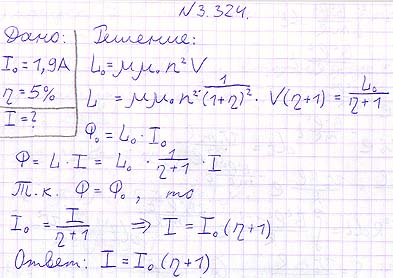 N3.324.
Дано: Решение:
I₀ = 1,9А L₀ = μμ₀n²V
η = 5% L = μμ₀n² · 1/(1+η)² · V(η+1) = L₀/(η+1)
I = ? Φ₀ = L₀ · I₀
Φ = L · I = L₀ · 1/(η+1) · I
Т.к. Φ = Φ₀, то
I₀ = I/(η+1) ⇒ I = I₀(η+1)
Ответ: I = I₀(η+1)